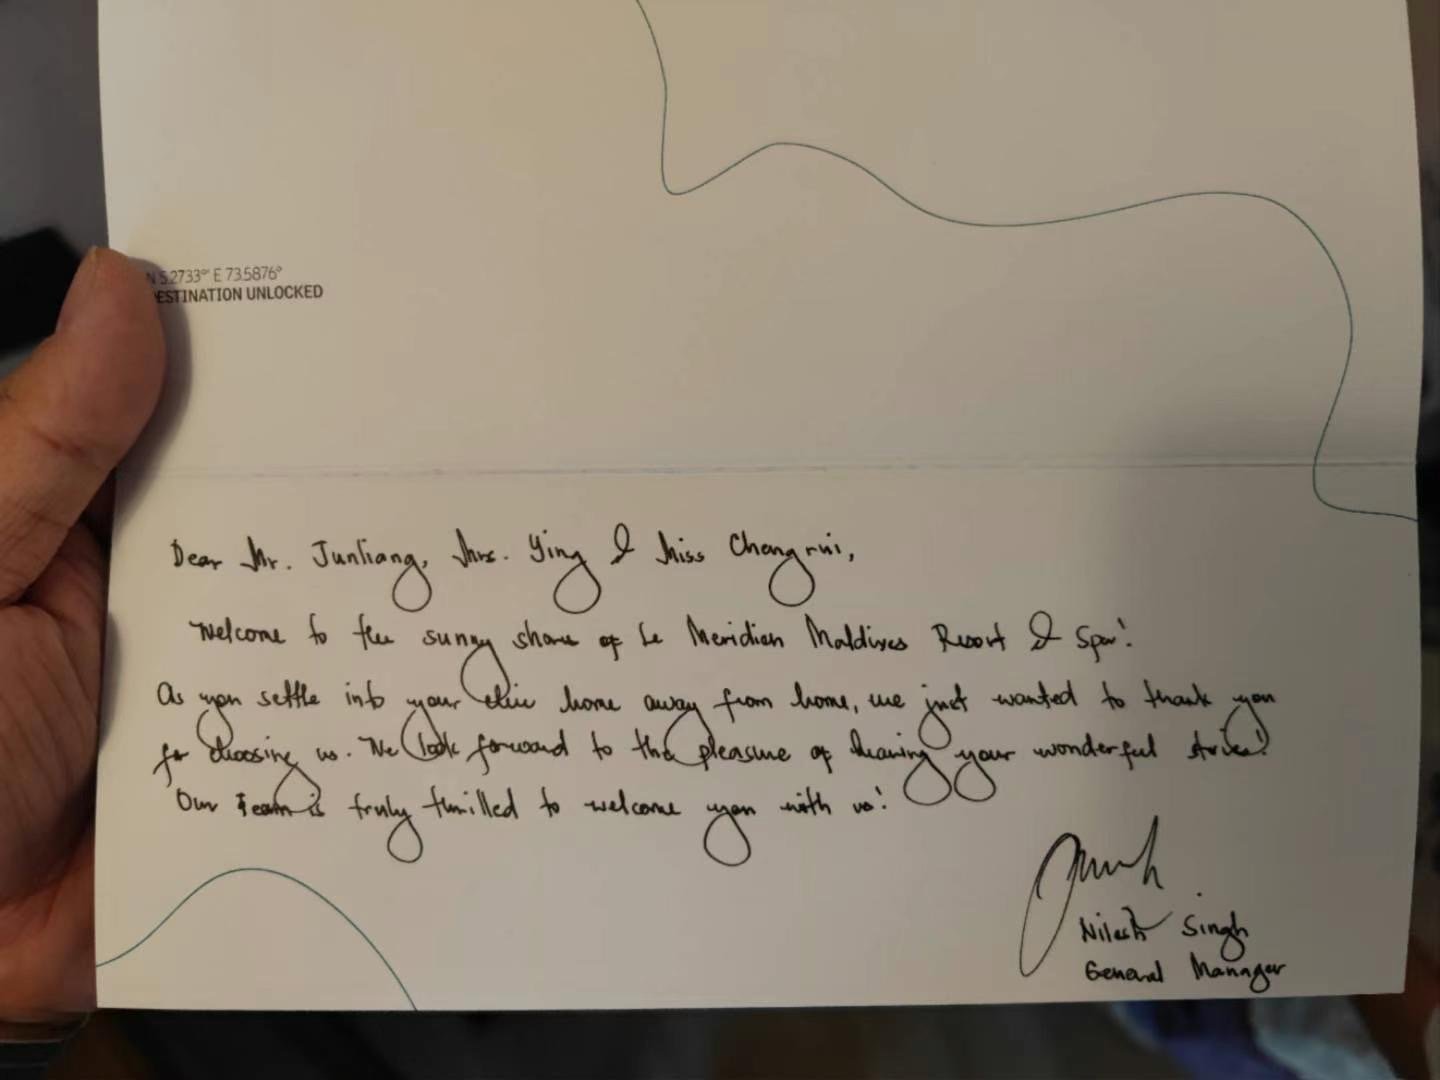 N 5.2733° E 73.5876°
ESTINATION UNLOCKED
Dear Mr. Junliang, Mrs. Ying & Miss Changrui,
Welcome to the sunny shores of Le Meridien Maldives Resort & Spa!
As you settle into your home away from home, we just wanted to thank you
for choosing us. We look forward to the pleasure of hearing your wonderful stories!
Our Team is truly thrilled to welcome you with us!
Nilesh Singh
General Manager